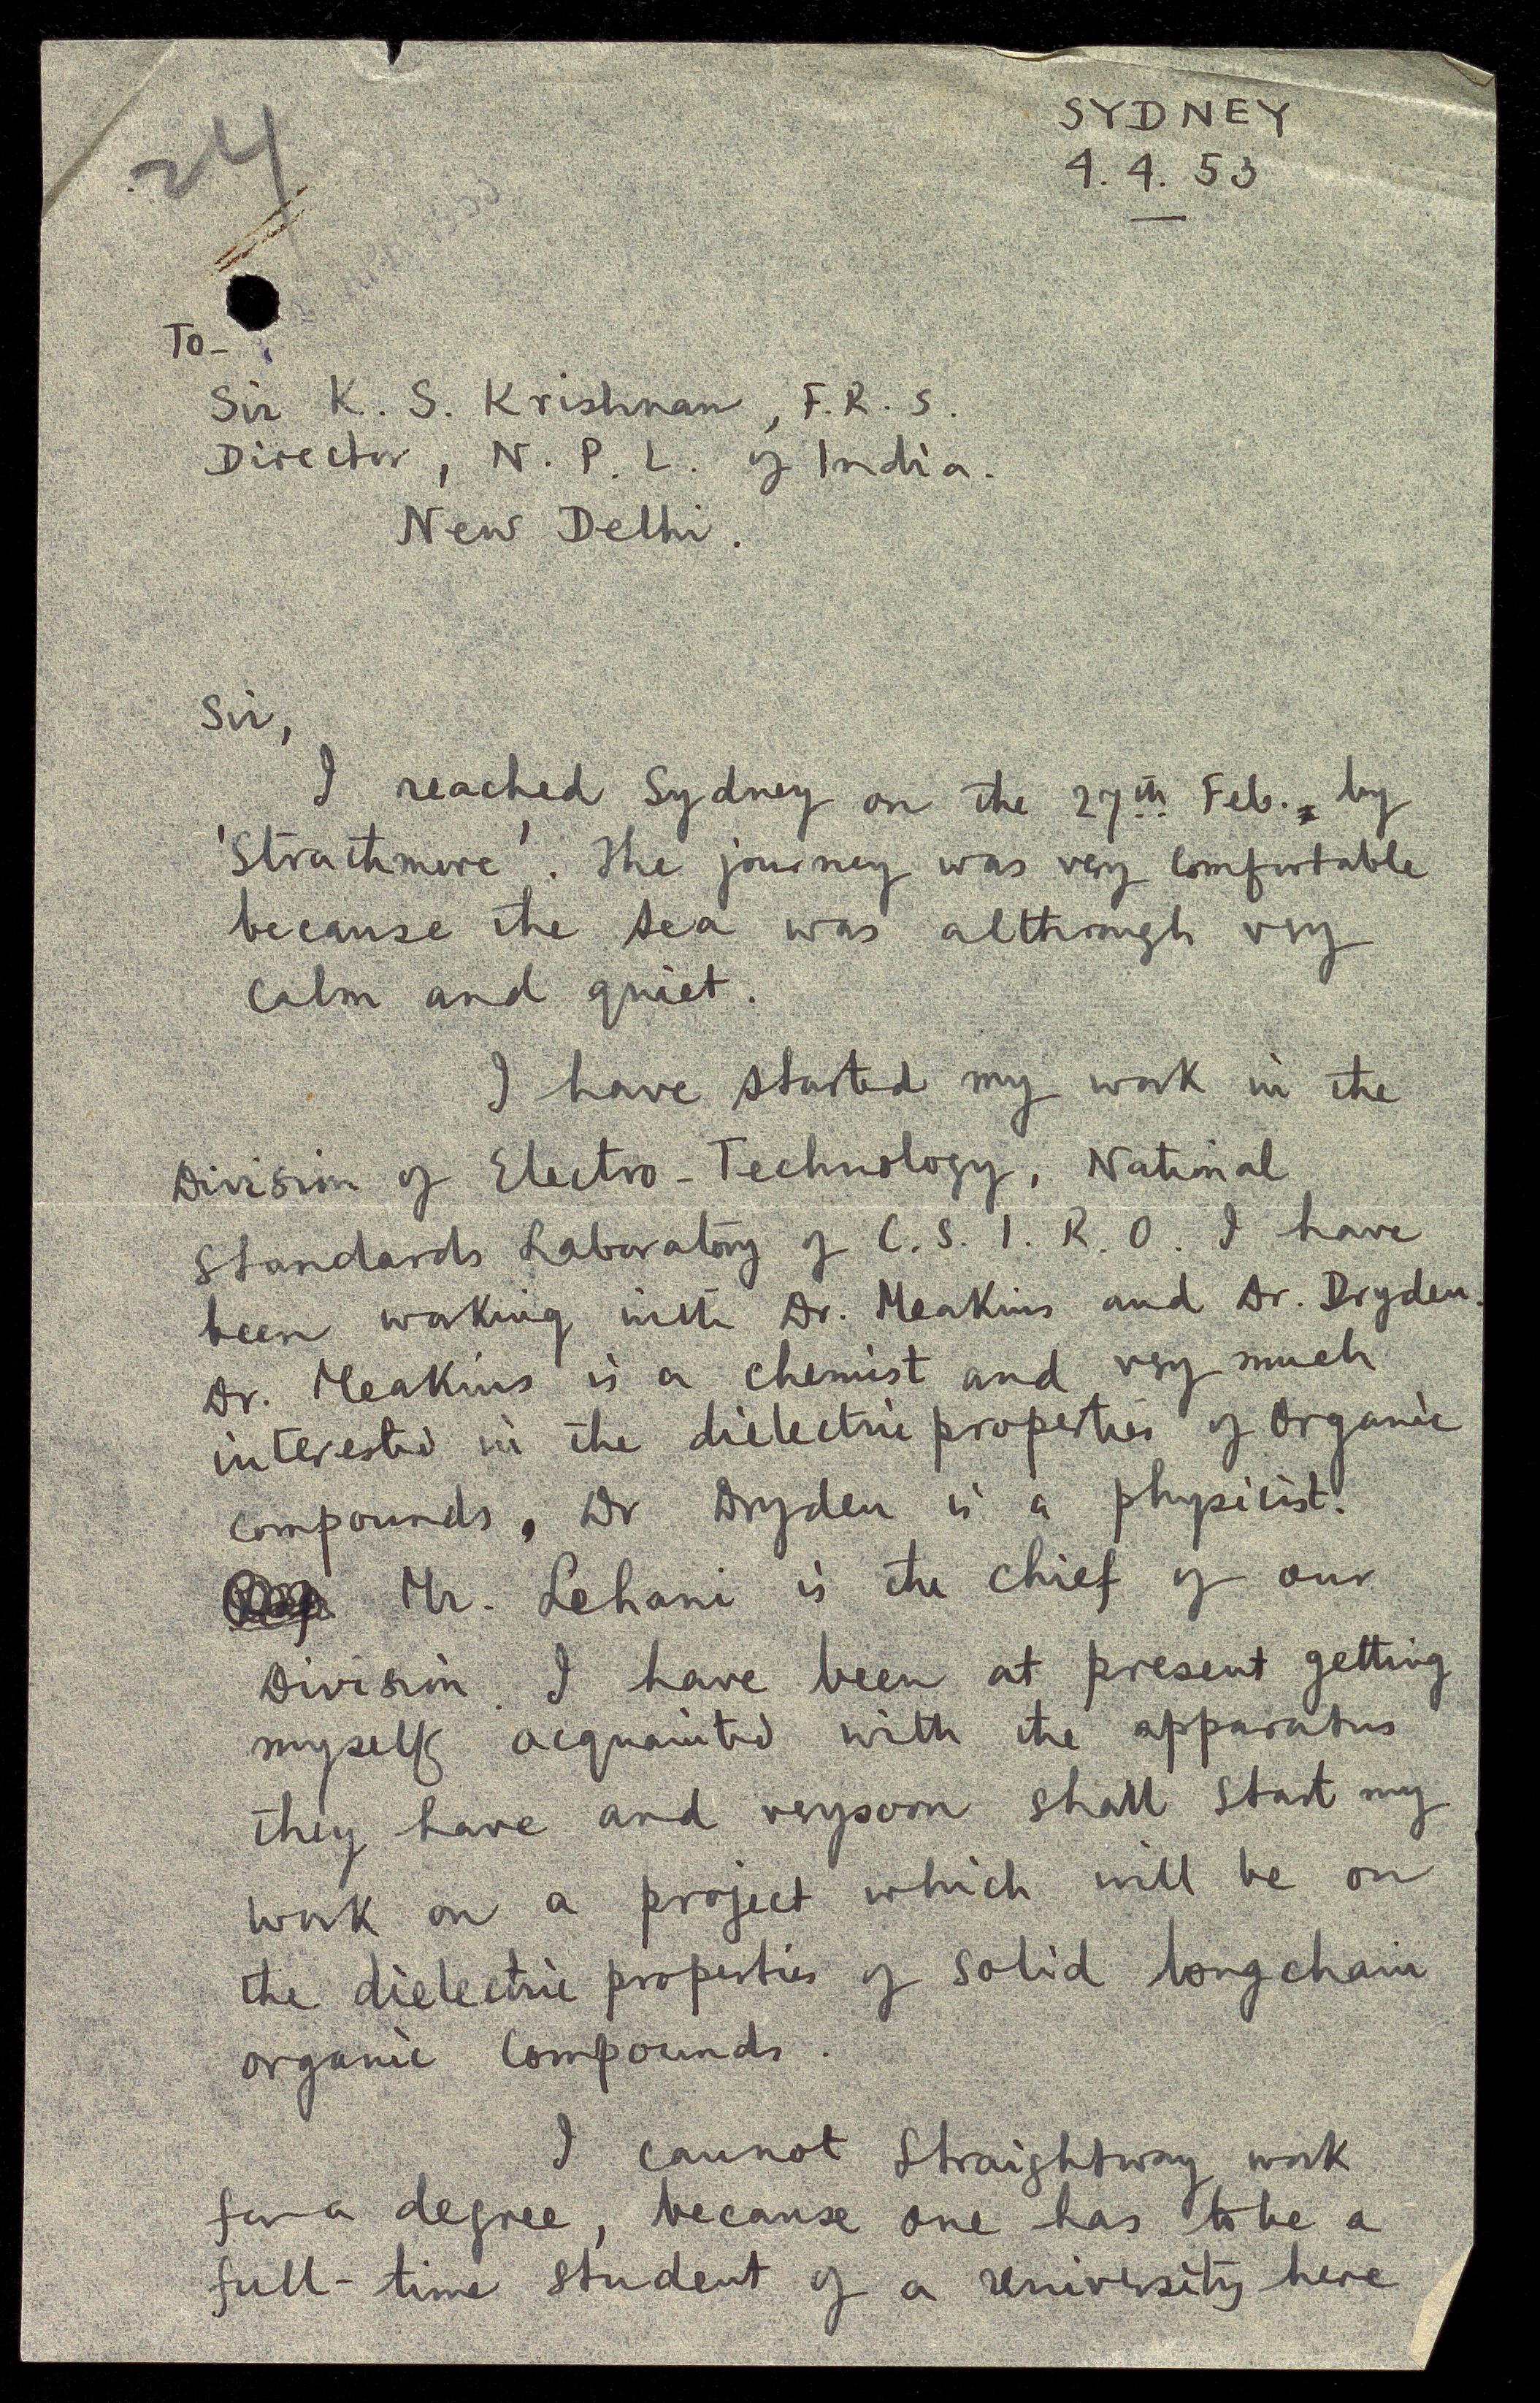 24
SYDNEY
4. 4. 53
To-
Sir K. S. Krishnan, F.R.S.
Director, N. P. L. of India.
New Delhi.
Sir,
I reached Sydney on the 27th Feb. by
'Strathmore'. The journey was very comfortable
because the sea was although very
calm and quiet.
I have started my work in the
Division of Electro-Technology, National
Standards Laboratory of C. S. I. R. O. I have
been working with Dr. Meakins and Dr. Dryden.
Dr. Meakins is a chemist and very much
interested in the dielectric properties of organic
compounds, Dr Dryden is a physicist.
Mr. Lehani is the chief of our
Division. I have been at present getting
myself acquainted with the apparatus
they have and very soon shall start my
work on a project which will be on
the dielectric properties of solid long chain
organic compounds.
I cannot straightway work
for a degree, because one has to be a
full-time student of a university here